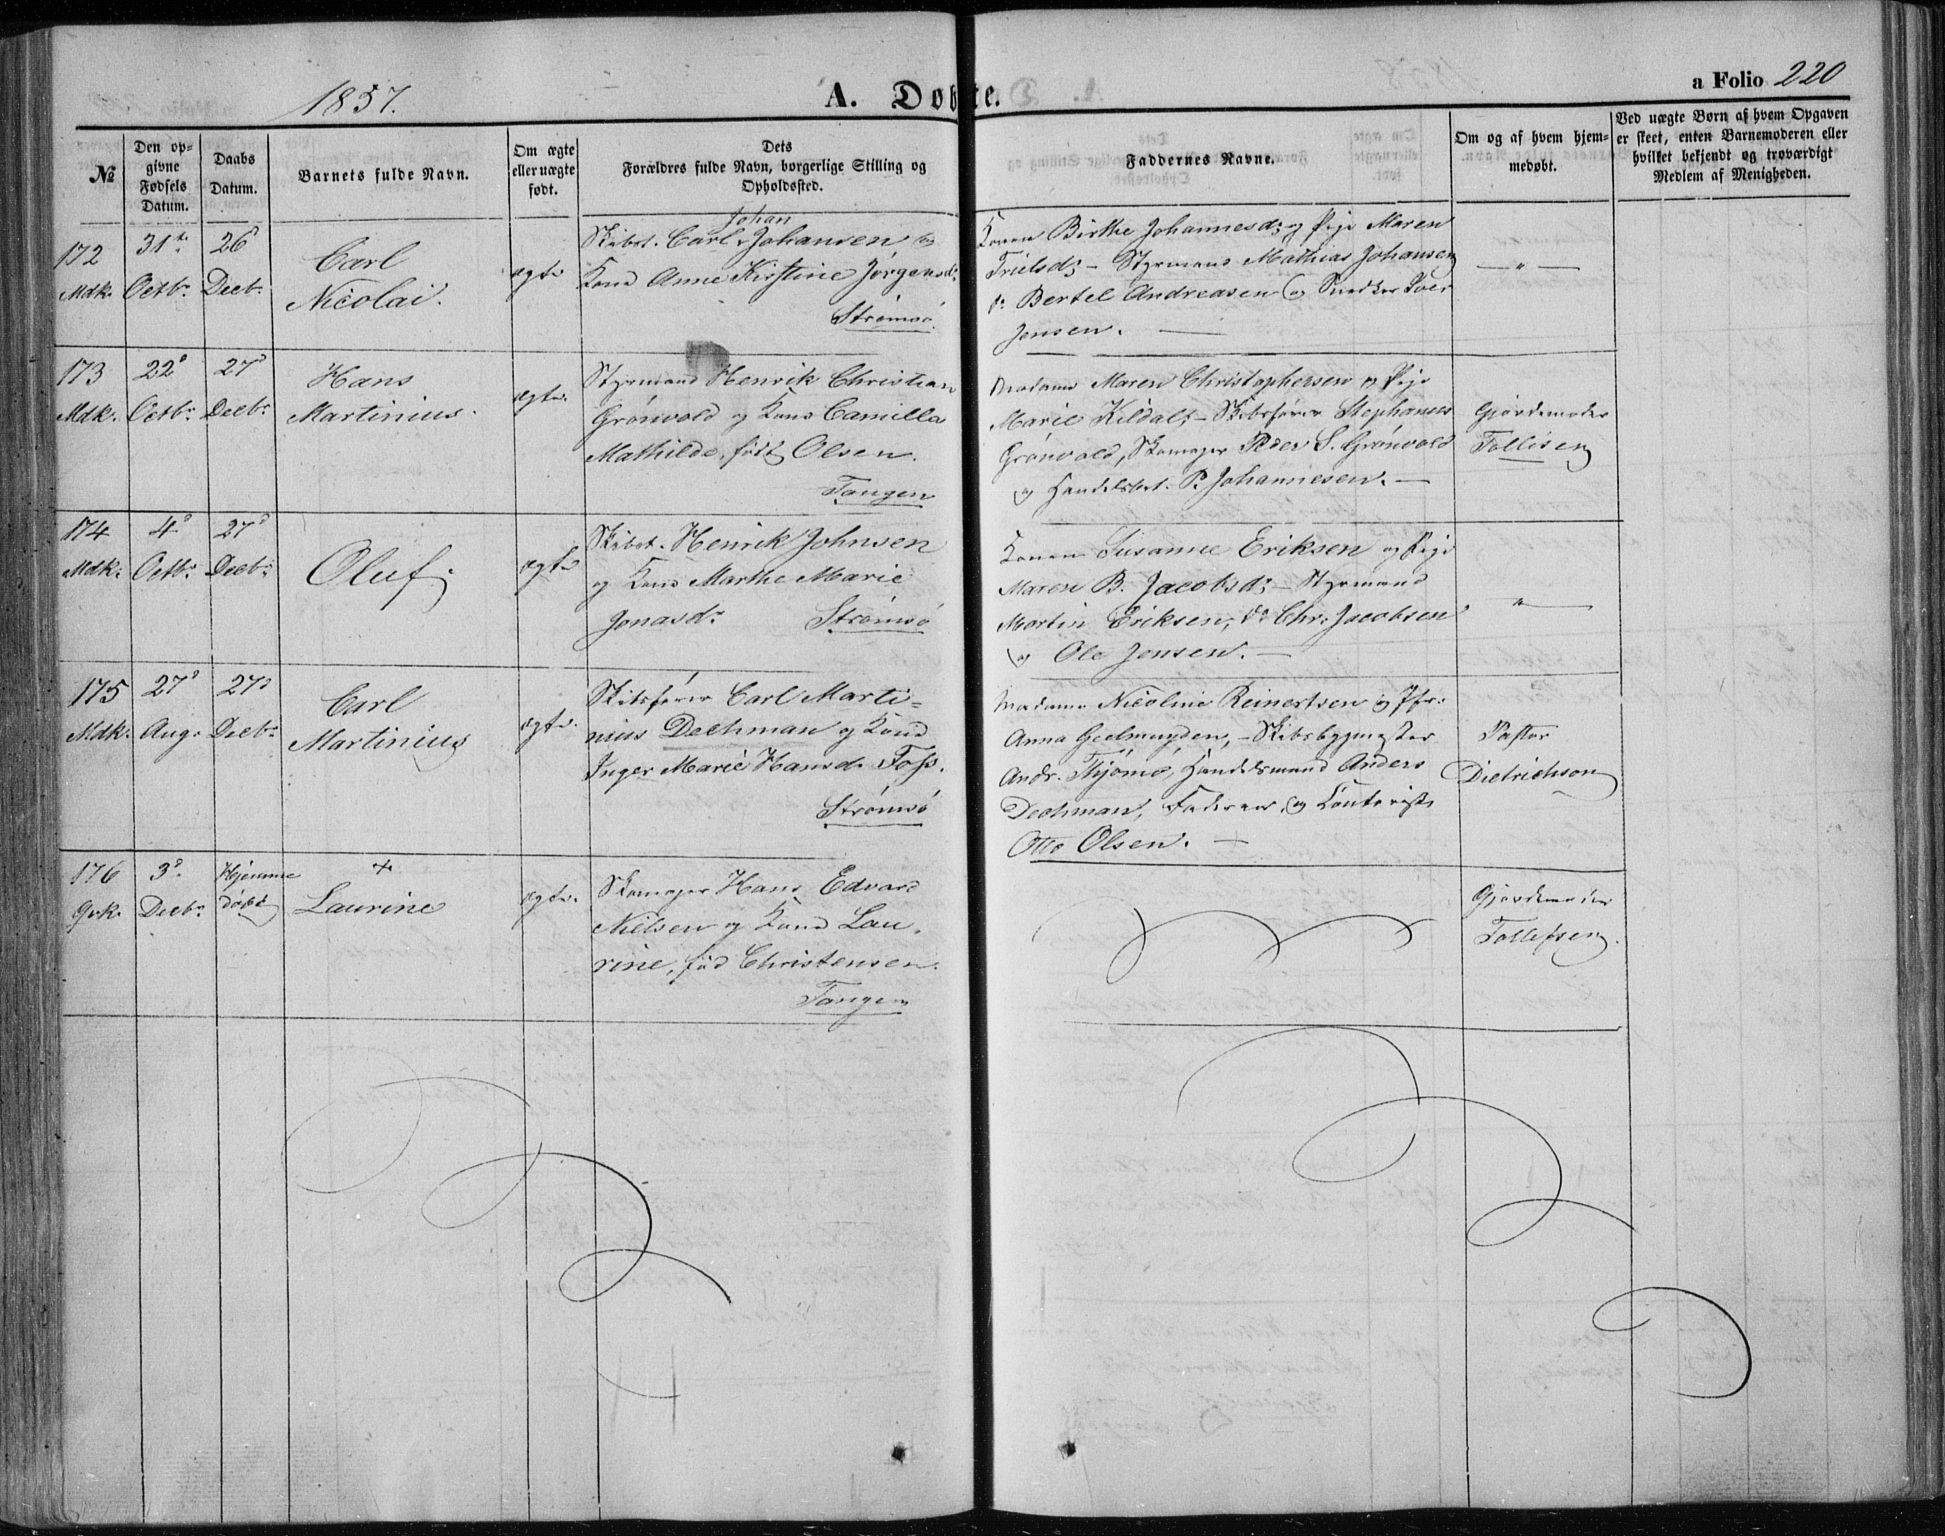 1857.
A. Døbte.
a Folio 220
№
Den opgivne Fødsels Datum.
Daabs Datum.
Barnets fulde Navn.
Om ægte eller uægte født.
Dets Forældres fulde Navn, borgerlige Stilling og Opholdssted.
Faddernes Navne.
Om og af hvem hjemmedøbt.
Ved uægte Børn af hvem Opgaven er skeet, enten Barnemoderen eller hvilket bekjendt og troværdigt Medlem af Menigheden.
172
Mdk.
31te
Octbr.
26d
Decbr.
Carl
Nicolai.
ægte
Johan
Skibst. Carl Johansen og
Kone Anne Kirstine Jørgensdr.
Strømsø.
Konen Birthe Johannesd; og Pige Maren
Trielsd; – Styrmand Mathias Johansen
do Bertel Andreasen og Snedker Iver
Jensen. —
— " —
173
Mdk.
22d
Octbr.
27d
Decbr.
Hans
Martinius.
ægte.
Styrmand Henrik Christian
Grønvold og Kone Camilla
Mathilde, født Olsen.
Tangen
Madame Maren Christophersen og Pige
Marie Kildal; – Skibsfører Stephanus
Grønvold, Skomager Peder S. Grønvold
og Handelsbet. P. Johannesen. —
Gjordemoder
Tollisen
174
Mdk.
4d
Octbr.
27d
Decbr.
Oluf.
ægte
Skibst. Henrik Johnsen
og Kone Marthe Marie
Jonasdr. Strømsø
Konen Susanne Eriksen og Pige
Maren B. Jacobsd; – Styrmand
Martin Eriksen, do Chr. Jacobsen
og Ole Jensen. —
" —
175
Mdk.
27d
Aug.
27d
Decbr.
Carl
Martinius
ægte.
Skibsfører Carl Marti=
nius Dechman og Kone
Inger Marie Hansd. Foss.
Strømsø
Madame Nicoline Reinertsen og Jfr.
Anna Geelmuyden, – Skibsbygmester
Andr. Thjømø, Handelsmand Anders
Dechman, Faderen, og Contorist
Otto Olsen. —
Pastor
Dietrichson
176
Qvk.
3d
Decbr.
Hjemme
døbt
+
Laurine
ægte.
Skomager Hans Edvard
Nielsen og Kone Lau=
rine, fød Christensen.
Tangen
Gjordemoder
Tollefsen.